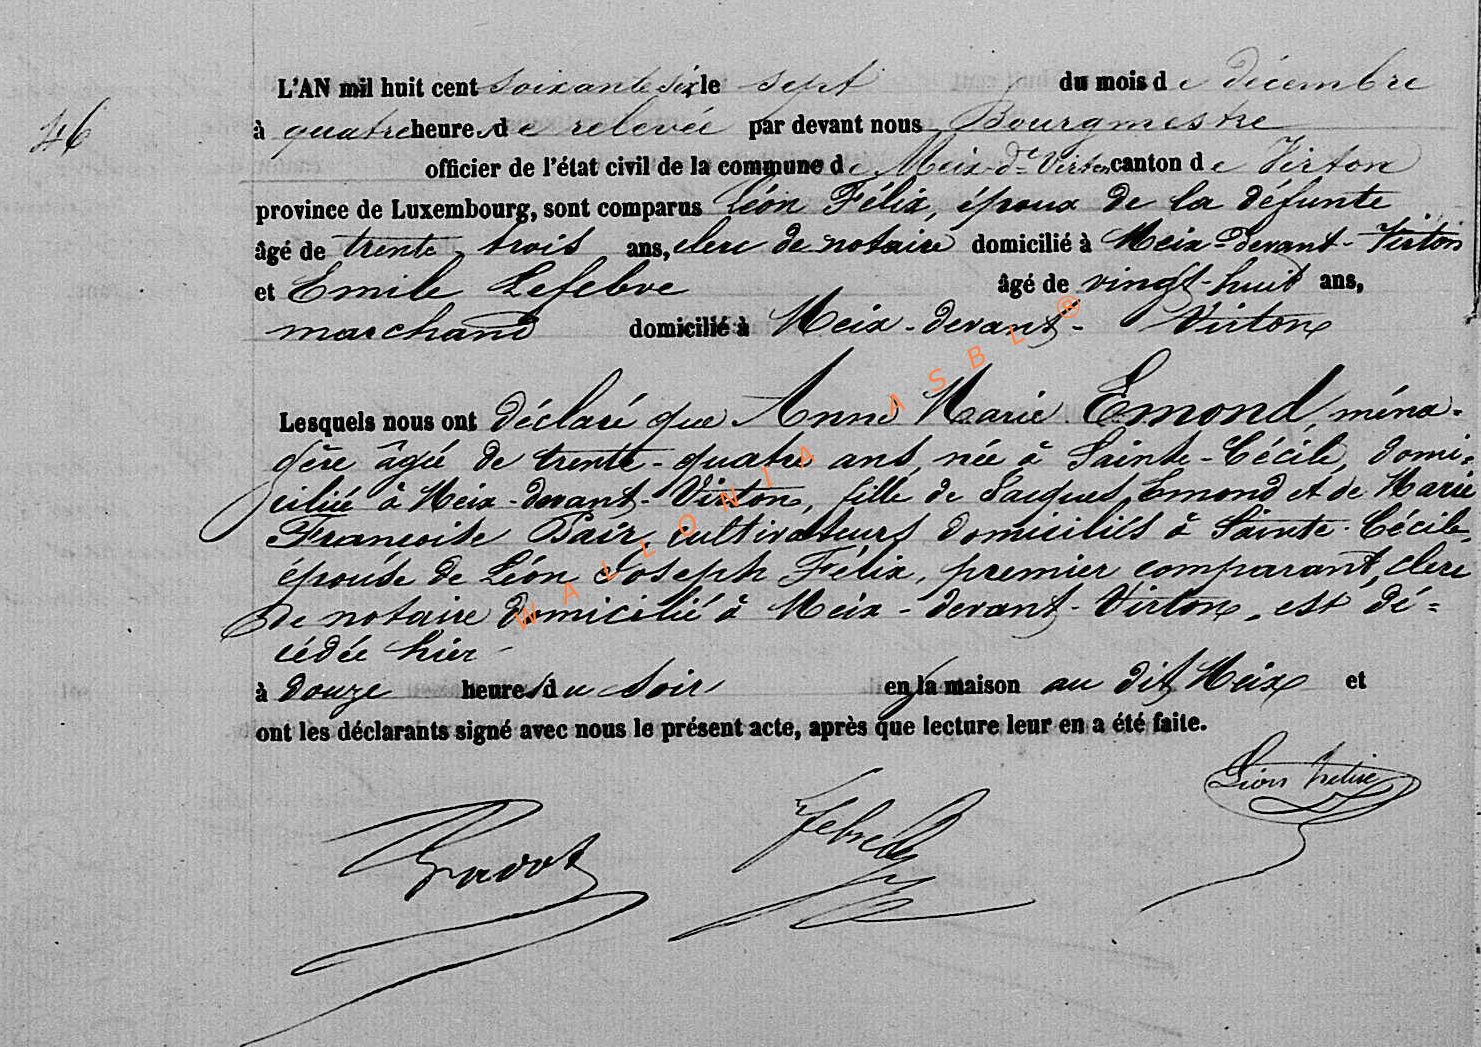 46
L'AN mil huit cent soixante six le sept du mois de décembre
à quatre heures de relevée par devant nous Bourgmestre
officier de l'état civil de la commune de Meix-dt Virton canton de Virton
province de Luxembourg, sont comparus Léon Félix, époux de la défunte
âgé de trente trois ans, clerc de notaire domicilié à Meix-devant-Virton
et Emile Lefebvre âgé de vingt-huit ans,
marchand domicilié à Meix-devant-Virton
Lesquels nous ont déclaré que Anne Marie Emond, ména-
gère âgée de trente-quatre ans, née à Sainte-Cécile, domi-
ciliée à Meix-devant-Virton, fille de Jacques Emond et de Marie
Françoise Pair, cultivateurs domiciliés à Sainte-Cécile,
épouse de Léon Joseph Félix, premier comparant, clerc
de notaire domicilié à Meix-devant-Virton, est dé=
cédée hier
à douze heures du soir en la maison au dit Meix et
ont les déclarants signé avec nous le présent acte, après que lecture leur en a été faite.
Léon Félix
WALLONIA ASBL ®